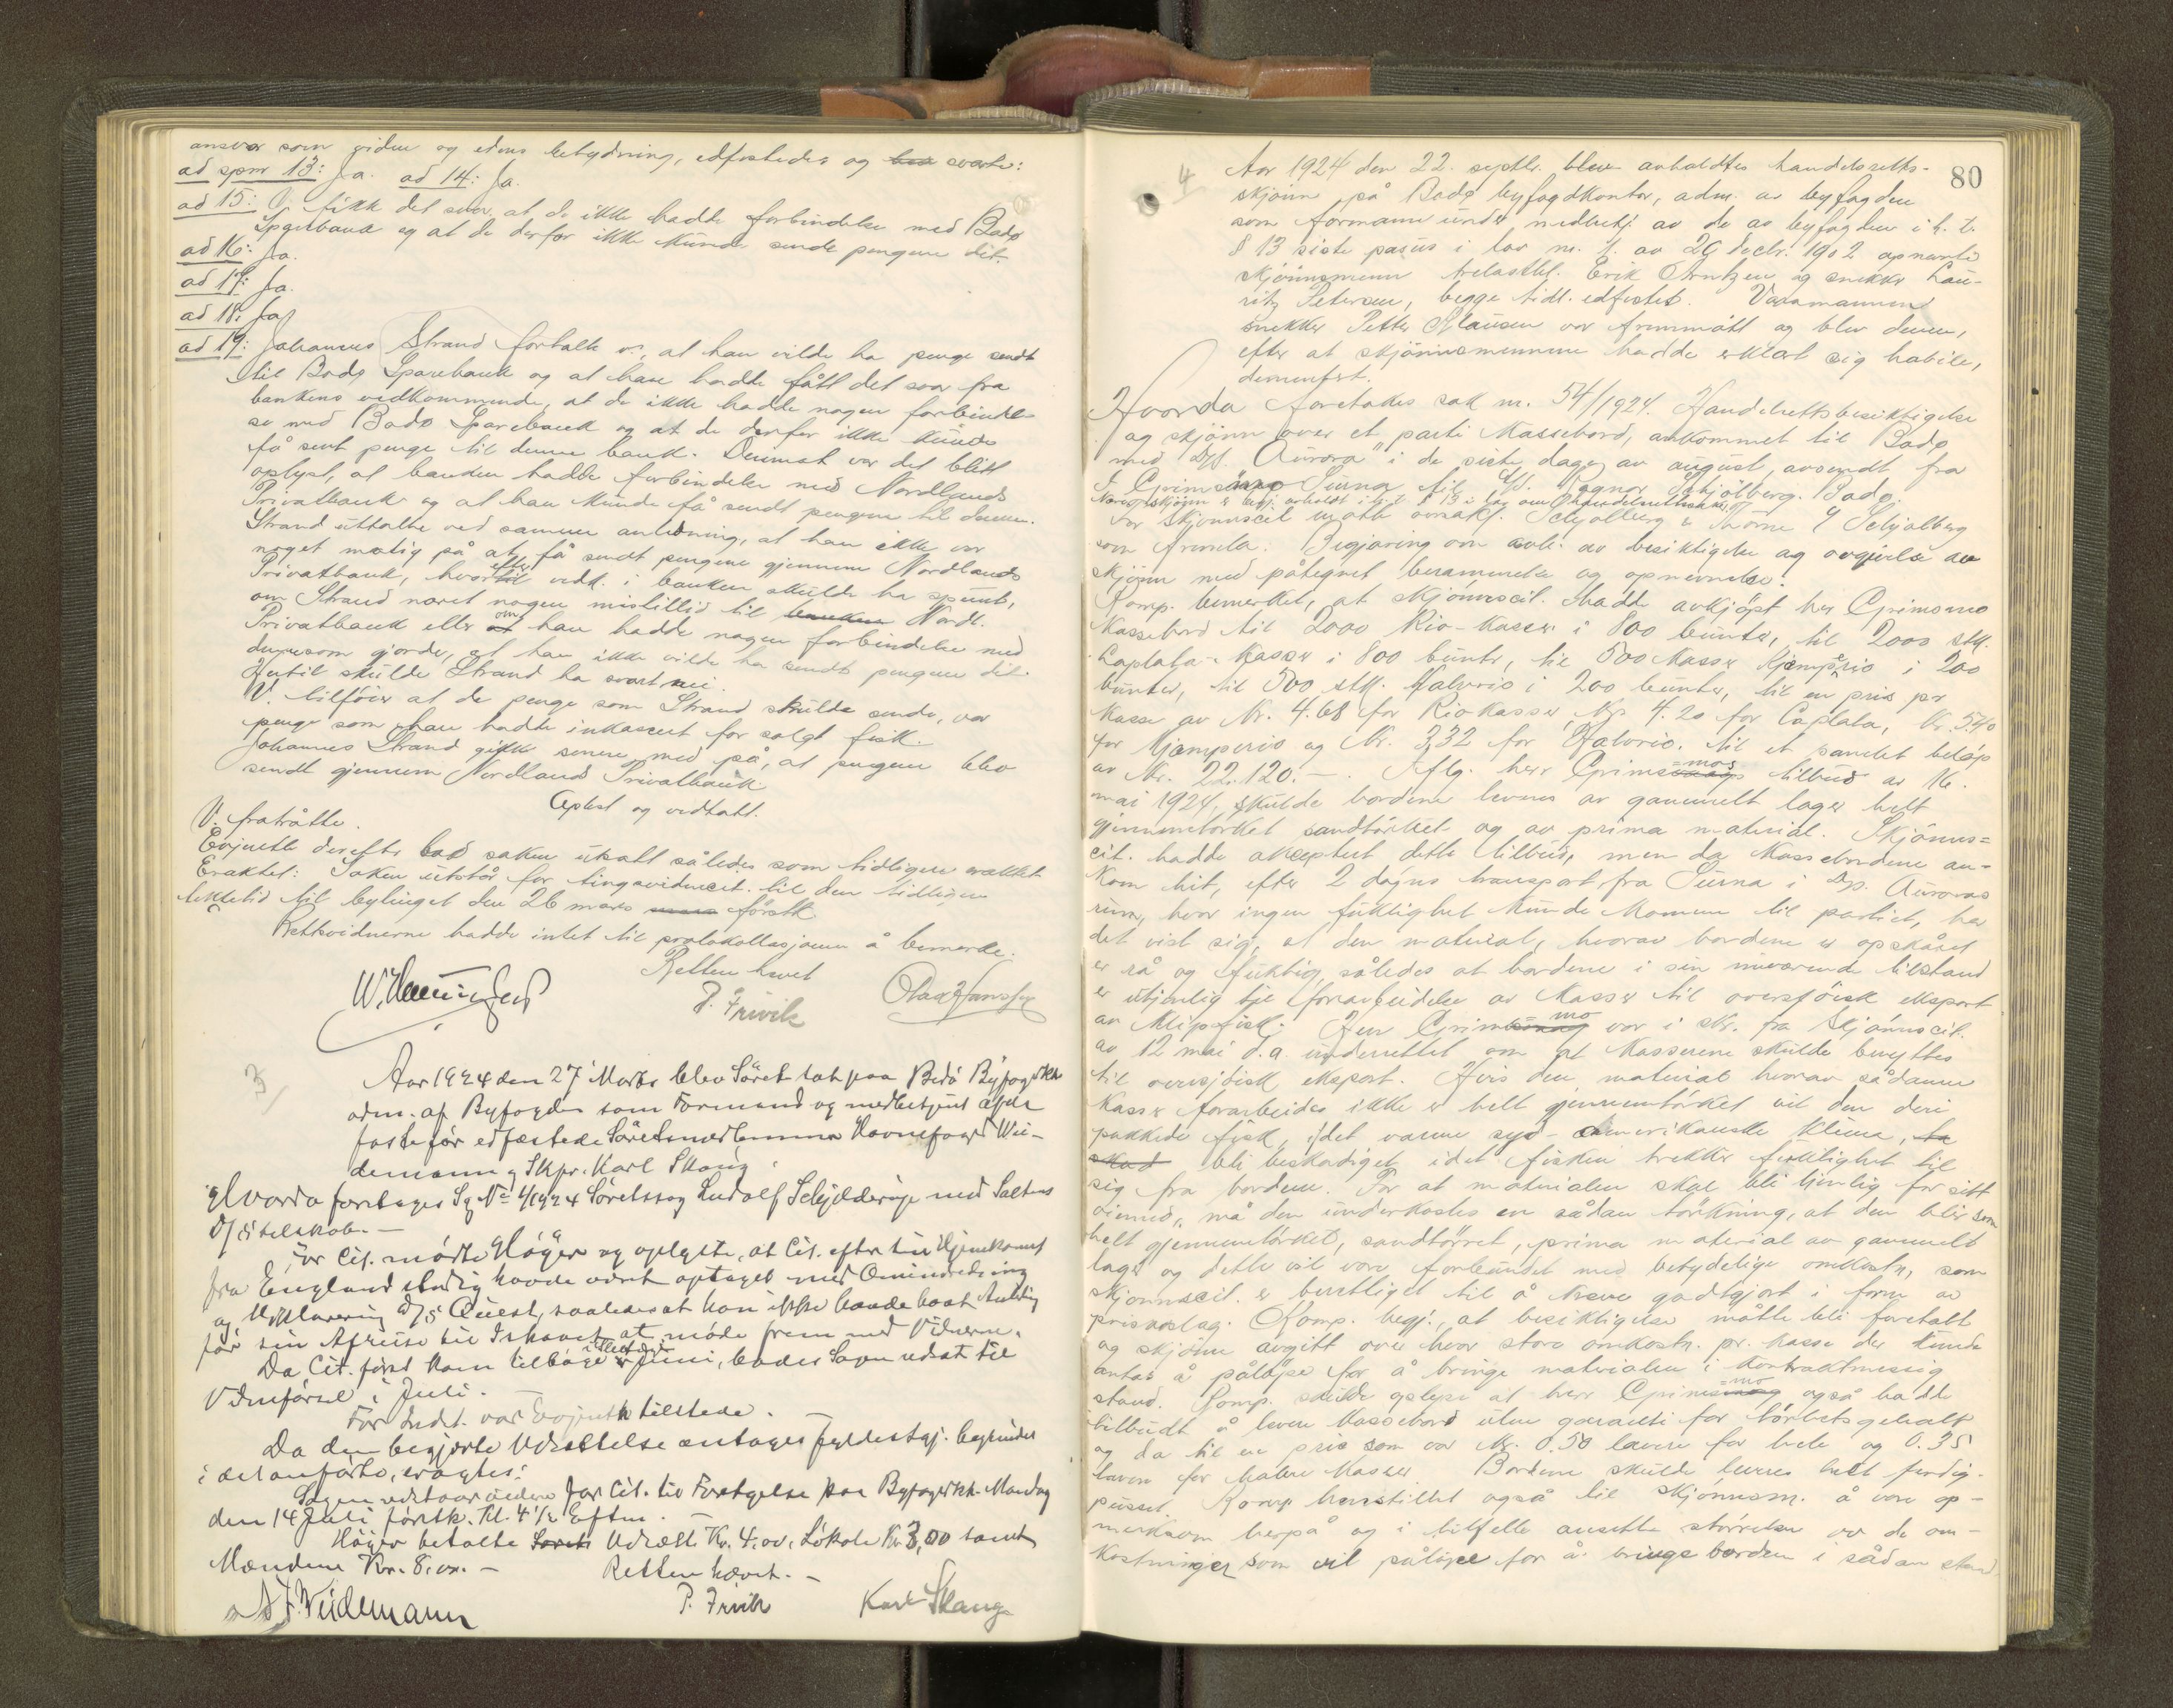 ansvar som viden og edens betydning, edfestedes og svarte:
ad spm 13: Ja. ad 14: Ja.
ad 15: V. fikk det svar at de ikke hadde forbindelse med Bodø
Sparebank og at de derfor ikke kunde sende pengene dit.
ad 16: Ja.
ad 17: Ja.
ad 18: Ja,
ad 19: Johannes Strand fortalte v., at han vilde ha penge sendt
til Bodø Sparebank og at han hadde fått det svar fra
bankens vedkommende, at de ikke hadde nogen forbindel-
se med Bodø Sparebank og at de derfor ikke kunde
få sent penge til denne bank. Derimot var det blitt
oplyst, at banken hadde forbindelse med Nordlands
Privatbank og at han kunde få sendt pengene til denne.
Strand uttalte ved samme anledning, at han ikke var
noget matig på at få sendt pengene gjennem Nordlands
Privatbank, hvorefter vedk. i banken skulde ha spurt,
om Strand næret nogen mistillid til banken Nordl.
Privatbank eller om han hadde nogen forbindelse med
den som gjorde, at han ikke vilde ha sendt pengene dit.
Hertil skulde Strand ha svart nei.
V. tilföier at de penge som Strand skulde sende, var
penge som han hadde inkassert for solgt fisk.
Johannes Strand gikk senere med på, at pengene blev
sendt gjennem Nordlands Privatbank
Oplest og vedtatt.
V. fratrådte.
Evjenth derefter bad saken utsatt således som tidligere
Eraktet: Saken utstår for tingsvidnecit. til den tidligere
til bytinget den 26 mars førstk.
Rettsvidnerne hadde intet til protokollasjonen å bemerke.
Retten hevet
P. Frivik
Olaf Hansen
3
Aar 1924 den 27 Marts blev Söret sat paa Bodö Byfogdktr.
adm. af Byfogden som Formand og medbetjent af de
faste før edfæstede Söretsmedlemmer Havnefoged Wii-
demann og Skpr. Karl Skaug.
Hvorda foretages Sg No 4/1924 Söretssag Ludolf Schjelderup med Saltens
D/S selskab. —
For Cit. mödte Höger og oplyste, at Cit. efter sin Hjemkomst
fra England stadig havde været optaget med Omindredning
og Udklarering D/S Quest, saaledes at han ikke havde havt Anledning
før sin Afreise til Ishavet at möde frem med Vidnerne.
Da Cit. först kom tilbage i Slutten af Juni, bades Sagen udsat til
Vidneförsel i Juli. —
For Indst. var Evjenth tilstede. —
Da den begjærte Udsættelse antages fyldestgj. begrundet
i det anförte, eragtes:
Sagen udstaar videre for Cit. til Foretagelse paa Byfogdktr. Mandag
den 14 Juli förstk. Kl. 4 1/2 Eftm. —
Höger betalte Udsætt. Kr. 4.00, Lokale Kr 3,00 samt
Mændene Kr. 8.00. —
Retten hævet. —
A. F. Wiidemann
P. Frivik
Karl Skaug
80
4
Aar 1924 den 22. septbr. blev avholdtes handelsretts-
skjønn på Bodø byfogdkontor, adm. av byfogden
som formann under medbetj. av de av byfogden i h. t.
§ 13 siste passus i lov nr. 1. av 29 decbr. 1902 opnevnte
skjönnsmenn trelasthl. Erik Arntzen og snekker Lau-
ritz Petersen, begge tidl. edfestet. Varamannen
snekker Petter Klausen var fremmøtt og blev denne,
efter at skjönnsmennene hadde erklært sig habile,
demittert.
Hvorda foretokes sak nr. 54/1924. Handelsrettsbesiktigelse
og skjönn over et parti kassebord, ankommet til Bodø
med D/S. "Aurora" i de siste dager av august, avsendt fra
J. Grimsmo Surna til Hr. Ragnar Schjölberg. Bodø.
Nærv. skjönn er begj. avholdt i h. t. § 13 i lov om handelsrettssaker.
For skjönnscit. møtte orsakf. Schjølberg & Thorne v/ Schjølberg
som fremla: Begjæring om avh. av besiktigelse og avgivelse av
skjönn med påtegnet berammelse og opnevnelse.
Komp. bemerket, at skjönnscit. hadde avkjöpt herr Grimsmo
kassebord til 2000 Rio-kasser i 800 bunter, til 2000 stk.
Laplata-kasser i 800 bunter, til 500 kasser kjemperio i 200
bunter, til 500 stk. Halvrio i 200 bunter, til en pris pr
kasse av Kr. 4.68 for Riokasser, Kr. 4.20 for Laplata, Kr. 5.40
for kjemperio og Kr. 3,32 for Halvrio. til et samlet beløp
av Kr. 22.120.—. Iflg. herr Grimsmos tilbud av 16.
mai 1924, skulde bordene leveres av gammelt lager helt
gjennemtørket sandtörket og av prima material. Skjönns=
cit. hadde akseptert dette tilbud, men da kassebordene an-
kom hit, efter 2 dagns transport fra Surna i D/S. Auroras
rum, hvor ingen fuktighet kunde komme til partiet, har
det vist sig, at den material, hvorav bordene er opskåret
er rå og fuktig, således at bordene i sin nuværende tilstand
er utjenlig til forarbeidelse av kasser til oversjøisk eksport
av klipfisk. Herr Grimsmo var i skr. fra skjönnscit.
av 12 mai d.a. underrettet om at kasserne skulde benyttes
til oversjøisk eksport. Hvis den material hvorav sådanne
kasser forarbeides ikke er helt gjennemtörket vil den deri
pakkede fisk, i det varme syd-amerikanske klima,
bli beskadiget idet fisken trekker fuktighet til
sig fra bordene. For at materialen skal bli tjenlig for sitt
öiemed, må den underkastes en sådan tørkning, at den blir som
helt gjennemtörket, sandtörret, prima material av gammelt
lager og dette vil være forbundet med betydelige omkostn, som
skjönnscit. er berettiget til å kreve godtgjort i form av
prisavslag. Komp. begj., at besiktigelse måtte bli foretatt
og skjönn avgitt over hvor store omkostn. pr. kasse der kunde
antas å påløpe for å bringe materialen i kontraktmessig
stand. Komp. skulde oplyse at herr Grimsmo også hadde
tilbudt å levere kassebord uten garanti for törhetsgehalt
og da til en pris som var Kr. 0.50 lavere for hele og 0.35
lavere for halve kasser. Bordene skulde leveres helt ferdig-
pusset. Komp henstillet også til skjönnsm. å være op-
merksom herpå og i tilfelle ansette størrelsen av de om-
kostninger som vil påløpe for å bringe bordene i sådan stand